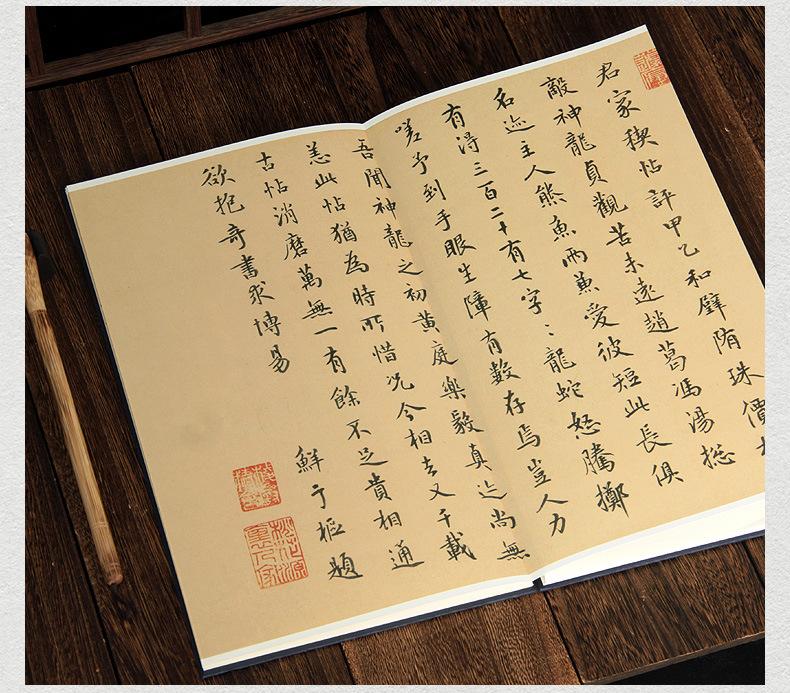 君家稧帖評甲乙和璧隋珠價
敵神龍貞觀苦未遠趙葛馮湯総
名迹主人熊魚兩兼愛彼短此長俱
有淂三百二十有七字〻龍蛇怒騰擲
嗟予到手眼生障有數存焉豈人力
吾聞神龍之初黃庭樂毅真迹尚無
恙此帖猶為時所惜况今相去又千載
古帖消磨萬無一有餘不足貴相通
欲抱奇書求博易
鮮于樞題